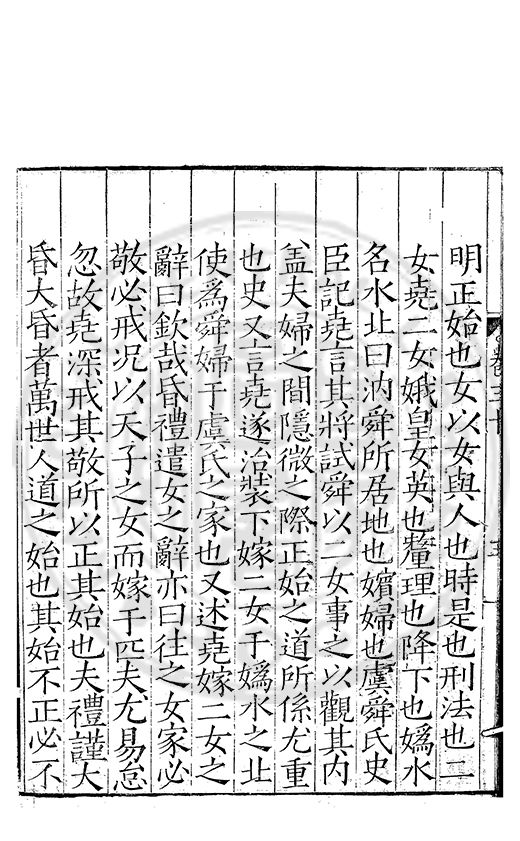 明正始也女以女與人也時是也刑法也二
女堯二女娥皇女英也釐理也降下也嬀水
名水北曰汭舜所居地也嬪婦也虞舜氏史
臣記堯言其將試舜以二女事之以觀其内
盖夫婦之間隱微之際正始之道所係尤重
也史又言堯遂治裝下嫁二女于嬀水之北
使爲舜婦于虞氏之家也又述堯嫁二女之
辭曰欽哉昏禮遣女之辭亦曰往之女家必
敬必戒况以天子之女而嫁于匹夫尤易怠
忽故堯深戒其敬所以正其始也夫禮謹大
昏大昏者萬世人道之始也其始不正必不
卷三十